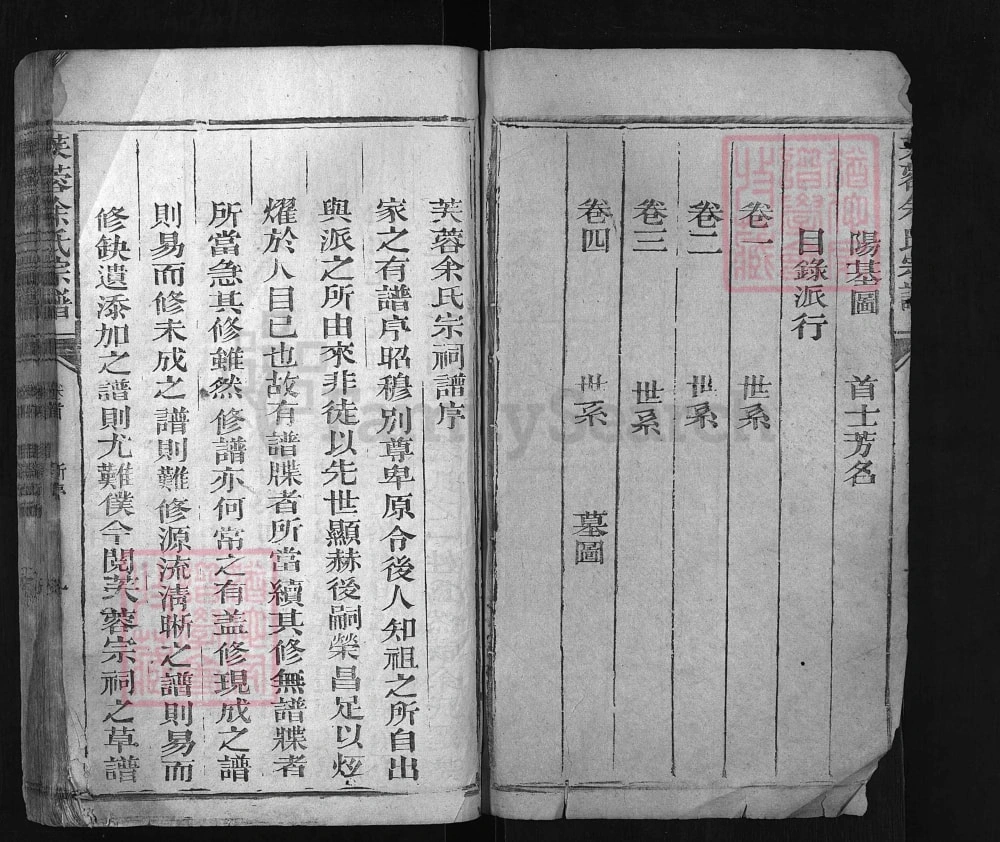 陽基圖　首士芳名
目錄派行
卷一　世系
卷二　世系
卷三　世系
卷四　世系　墓圖
芙蓉余氏宗祠譜序
家之有譜序昭穆別尊卑原令後人知祖之所自出
與派之所由來非徒以先世顯赫後嗣榮昌足以炫
燿於人目已也故有譜牒者所當續其修無譜牒者
所當急其修雖然修譜亦何常之有盖修現成之譜
則易而修未成之譜則難修源流淸晰之譜則易而
修缺遺添加之譜則尤難僕今閱芙蓉宗祠之草譜
芙蓉余氏宗譜
卷首
FamilySearch